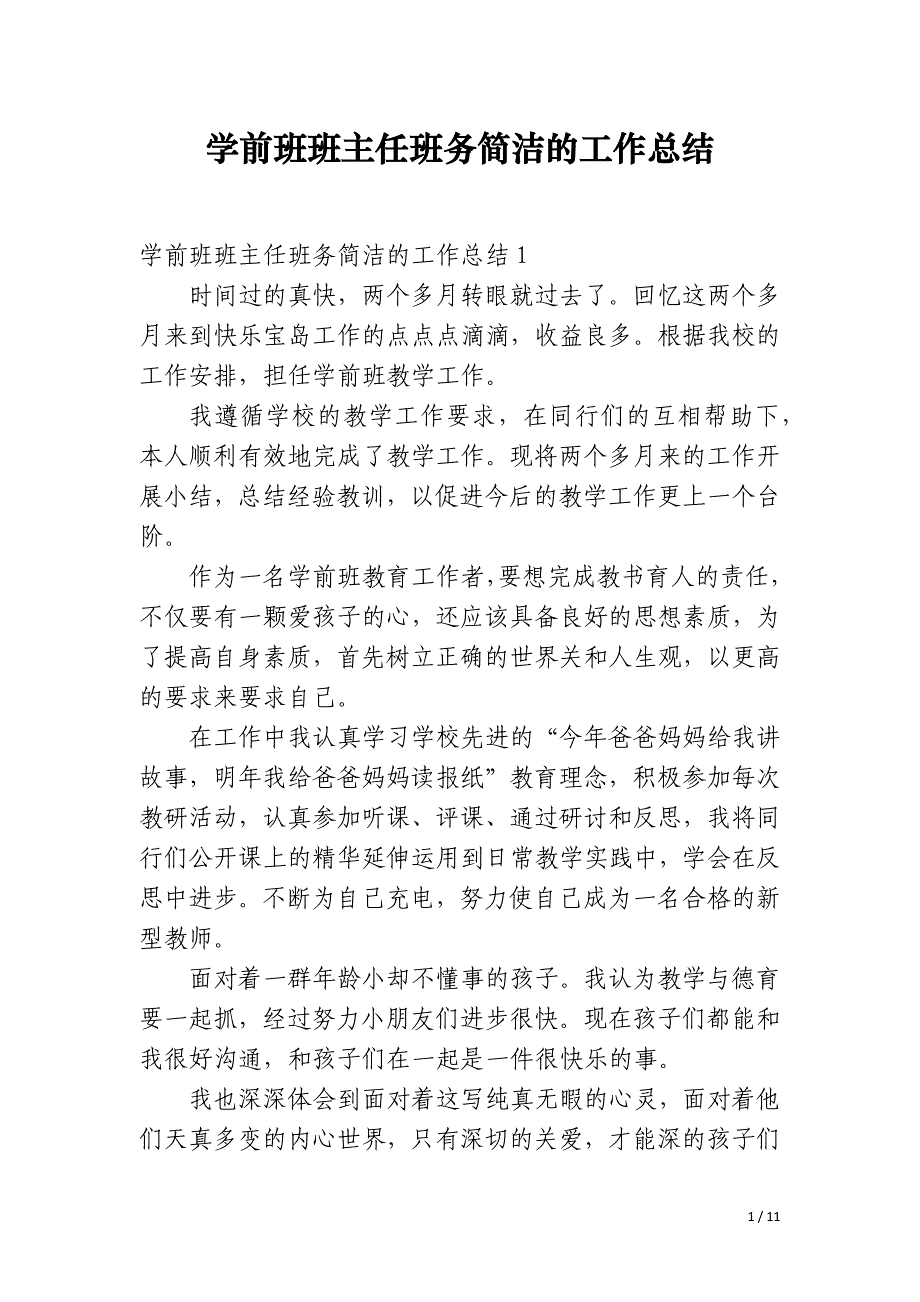 学前班班主任班务简洁的工作总结
学前班班主任班务简洁的工作总结 1
时间过的真快，两个多月转眼就过去了。回忆这两个多
月来到快乐宝岛工作的点点点滴滴，收益良多。根据我校的
工作安排，担任学前班教学工作。
我遵循学校的教学工作要求，在同行们的互相帮助下，
本人顺利有效地完成了教学工作。现将两个多月来的工作开
展小结，总结经验教训，以促进今后的教学工作更上一个台
阶。
作为一名学前班教育工作者，要想完成教书育人的责任，
不仅要有一颗爱孩子的心，还应该具备良好的思想素质，为
了提高自身素质，首先树立正确的世界关和人生观，以更高
的要求来要求自己。
在工作中我认真学习学校先进的“今年爸爸妈妈给我讲
故事，明年我给爸爸妈妈读报纸”教育理念，积极参加每次
教研活动，认真参加听课、评课、通过研讨和反思，我将同
行们公开课上的精华延伸运用到日常教学实践中，学会在反
思中进步。不断为自己充电，努力使自己成为一名合格的新
型教师。
面对着一群年龄小却不懂事的孩子。我认为教学与德育
要一起抓，经过努力小朋友们进步很快。现在孩子们都能和
我很好沟通，和孩子们在一起是一件很快乐的事。
我也深深体会到面对着这写纯真无暇的心灵，面对着他
们天真多变的内心世界，只有深切的关爱，才能深的孩子们
1 / 11